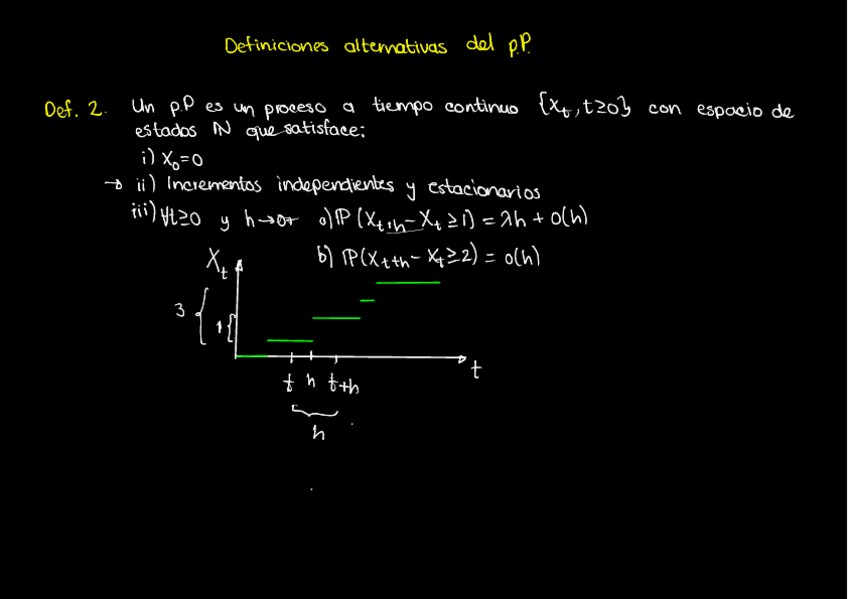 Definiciones alternativas del p.P.
Def. 2. Un pP es un proceso a tiempo continuo {X_t, t≥0} con espacio de
estados ℕ que satisface:
i) X_0=0
→ ii) Incrementos independientes y estacionarios
iii) ∀t≥0 y h→0+ a) ℙ(X_{t+h} - X_t ≥ 1) = λh + o(h)
b) ℙ(X_{t+h} - X_t ≥ 2) = o(h)
X_t
3 { 1 {
t h t+h t
h